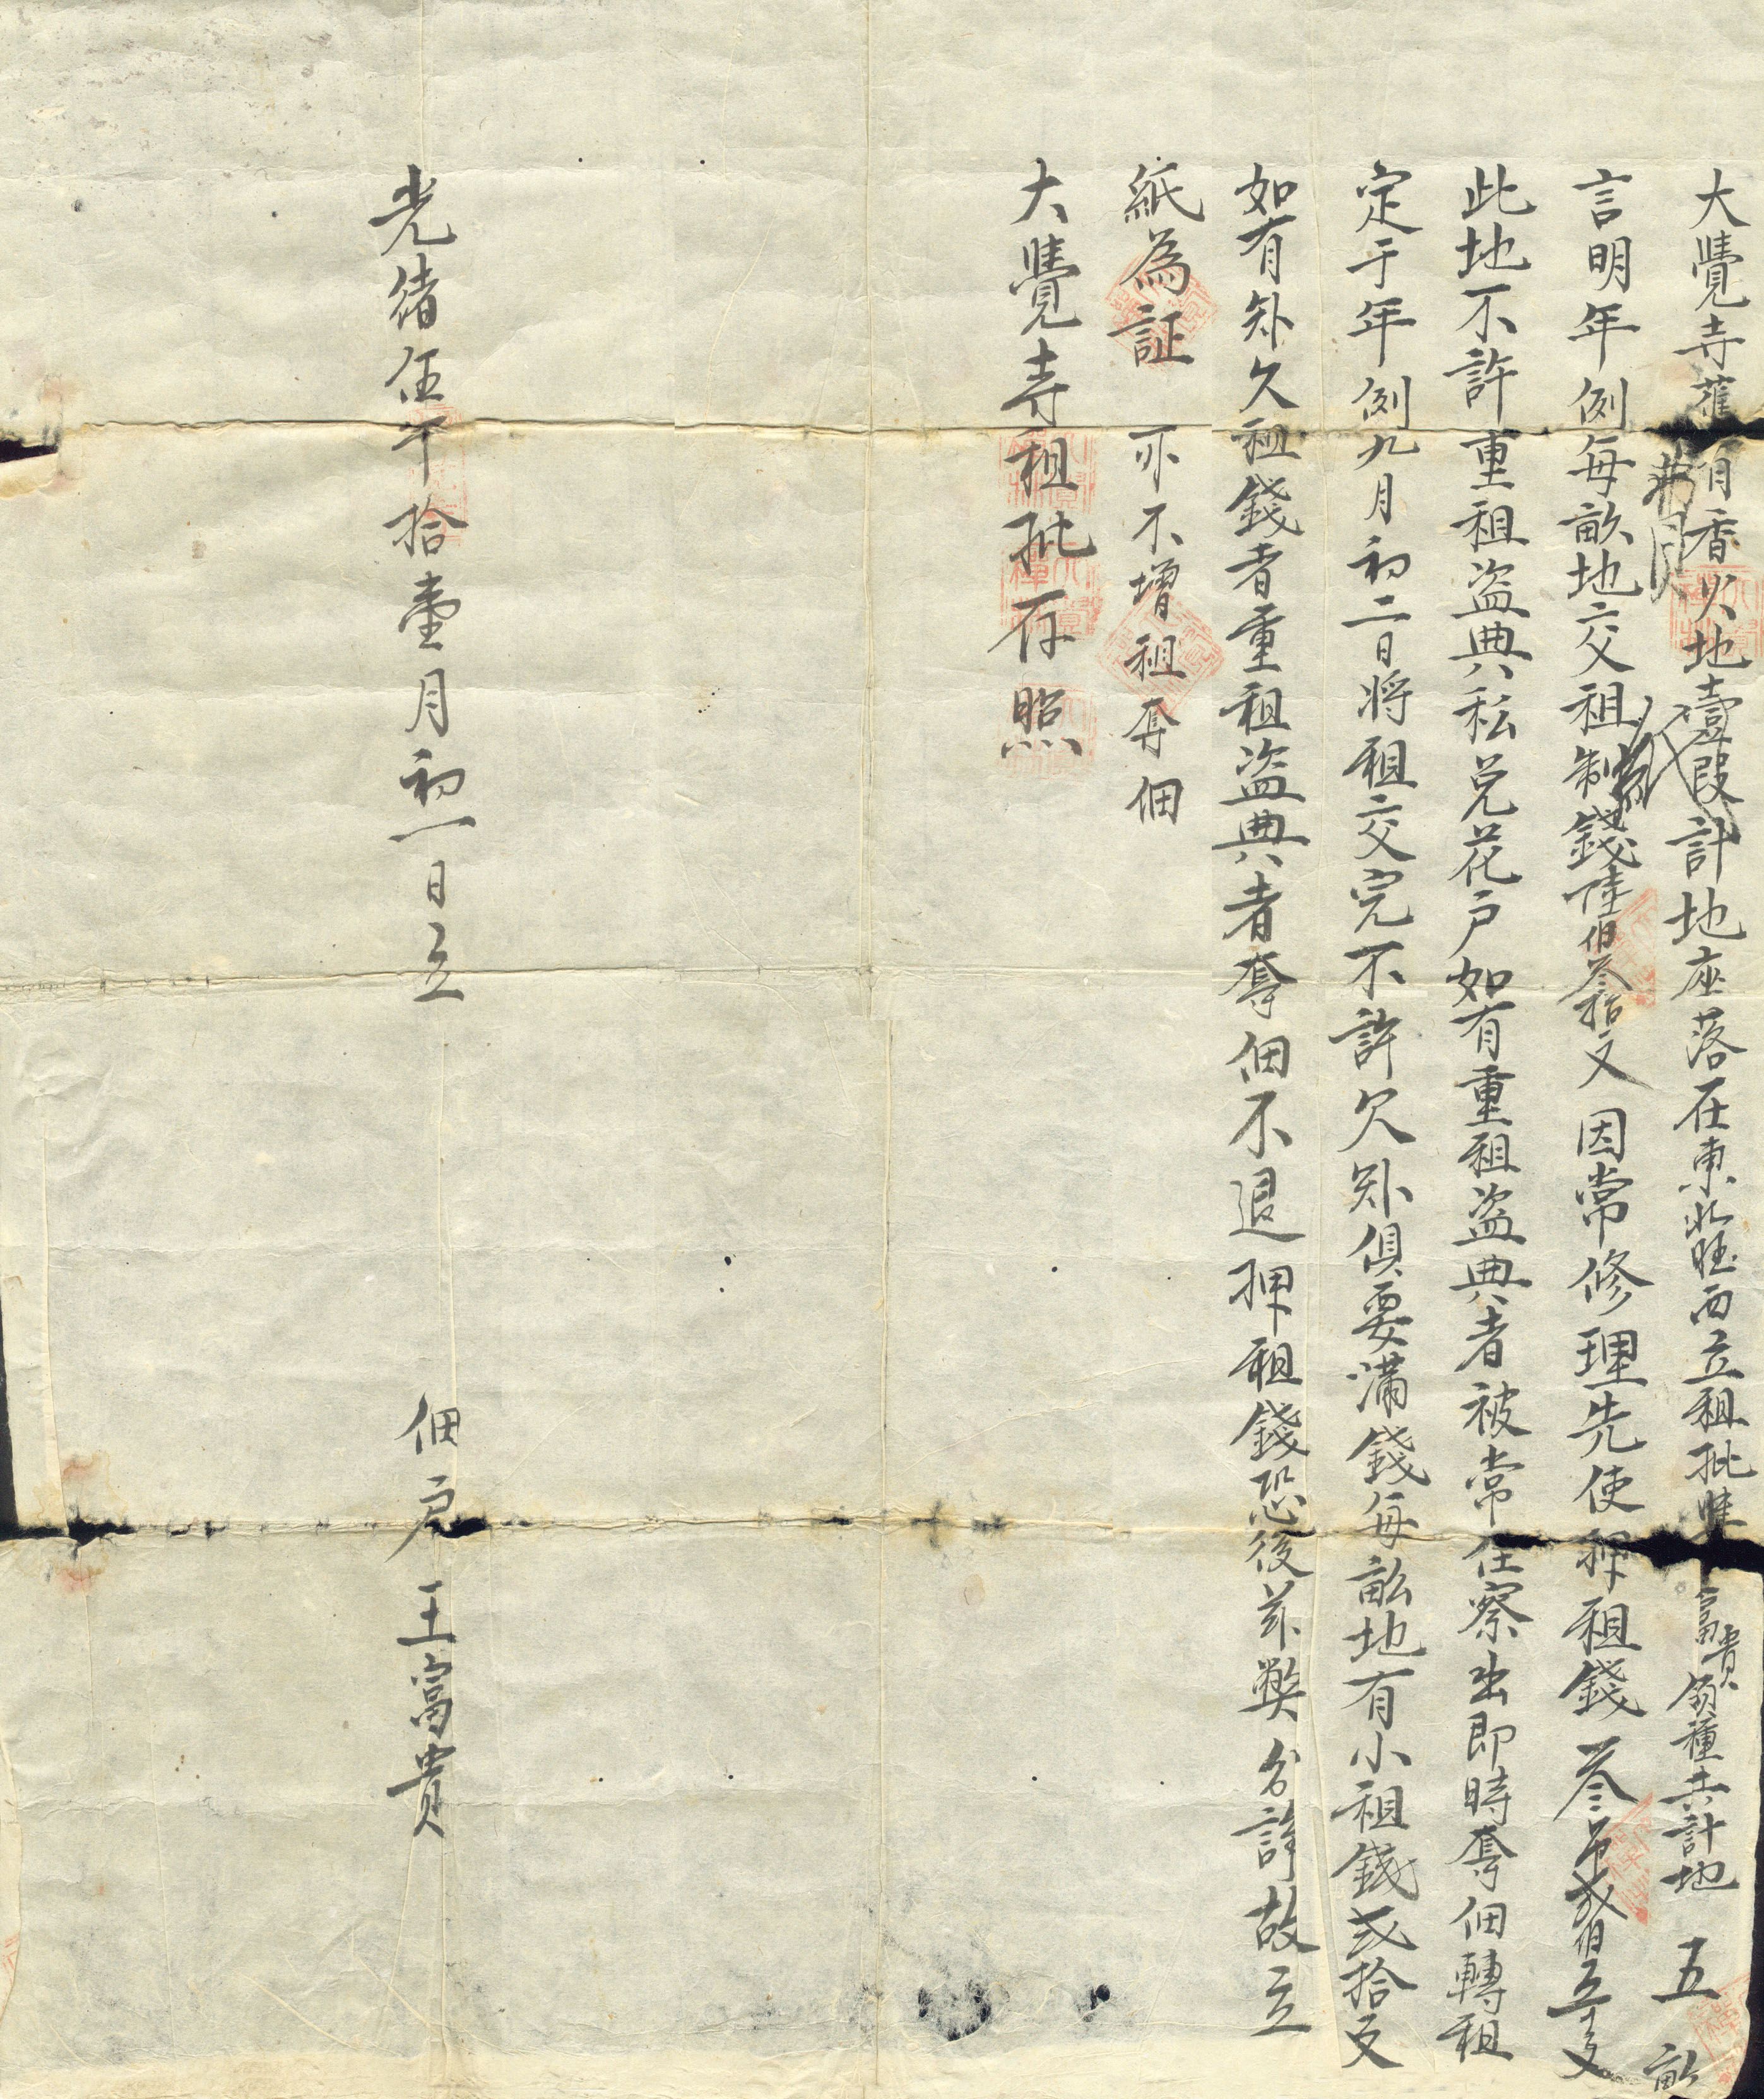 大覺寺舊有香火地壹叚計地座落在東北旺西立租批 富貴領種共計地五畝
言明年例每畝地交租制錢陸伯叁拾文因常修理先使押租錢叁吊貳伯五十文
此地不許重租盜典私兌花户如有重租盜典者被常住察出即時奪佃轉租
定于年例九月初二日將租交完不許欠缺俱要滿錢每畝地有小租錢弍拾文
如有缺欠租錢者重租盜典者奪佃不退押租錢恐後
故立
紙為証 亦不增租奪佃
大覺寺租批存照
光緒伍年拾壹月初一日立
佃户 王富貴